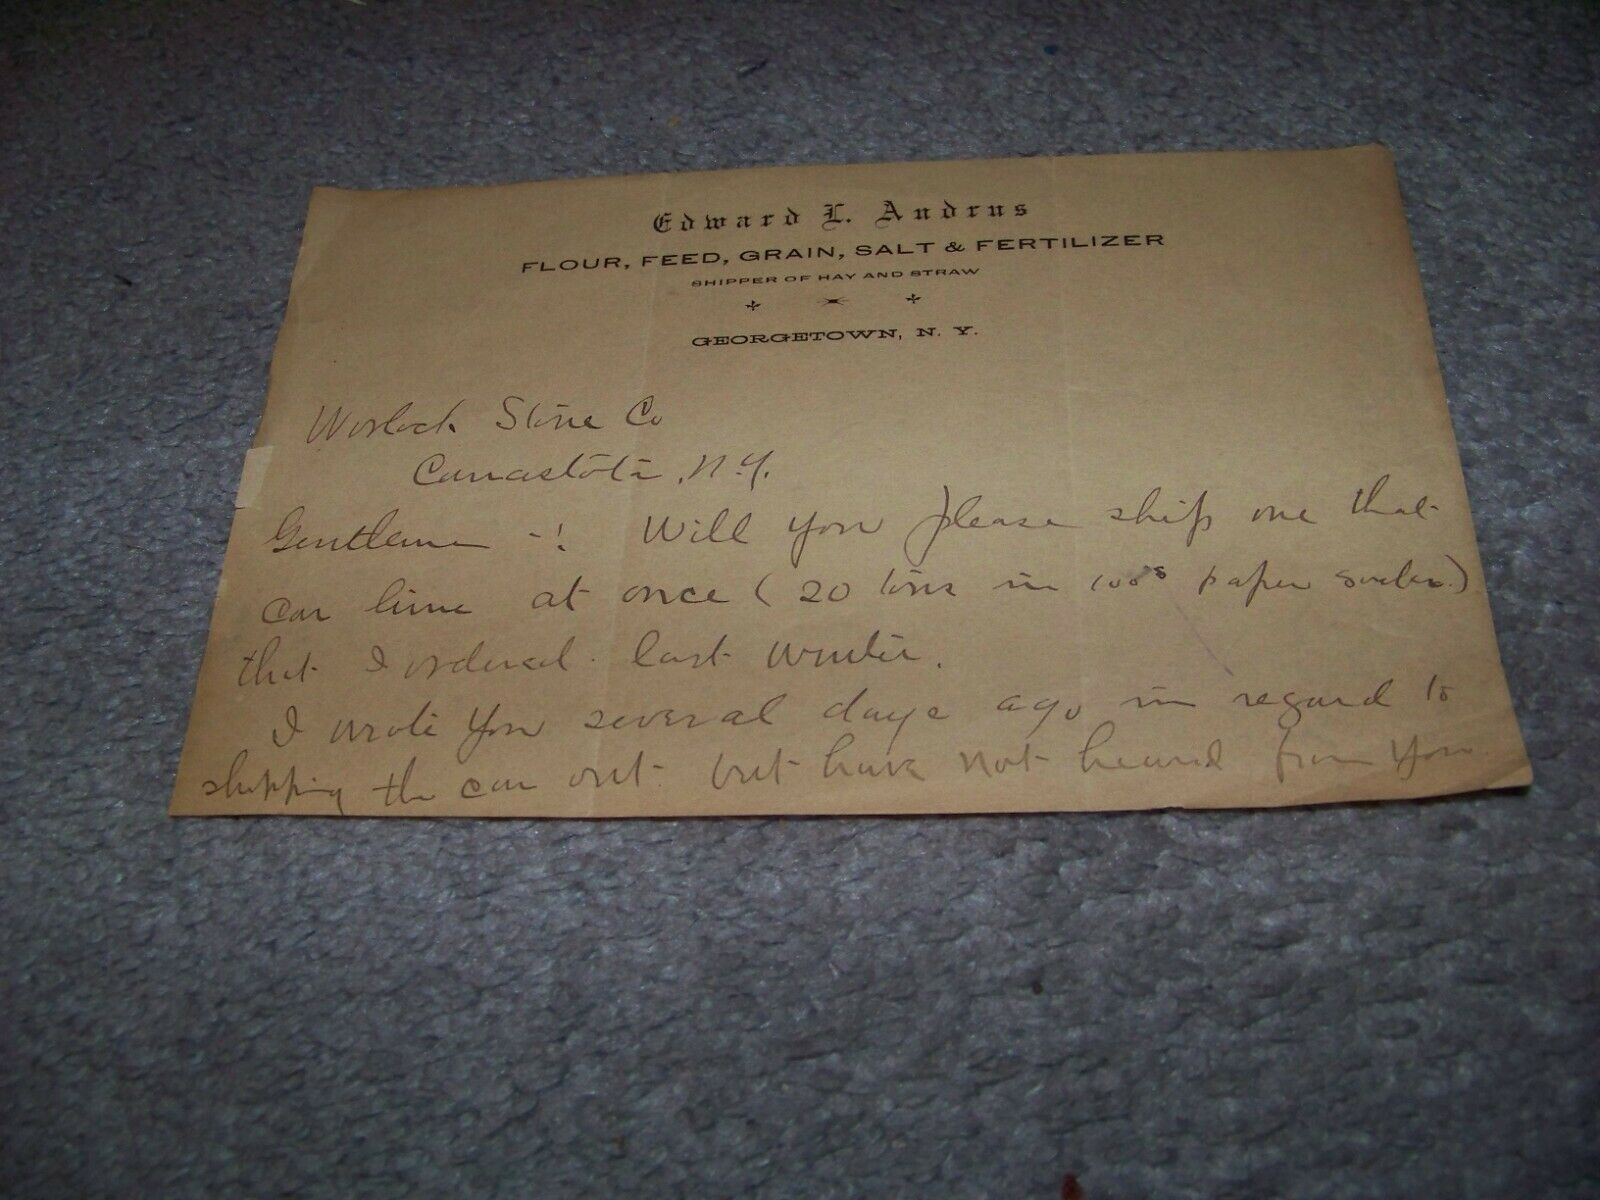 Edward L. Andrus
FLOUR, FEED, GRAIN, SALT & FERTILIZER
SHIPPER OF HAY AND STRAW
GEORGETOWN, N. Y.
Worlock Stone Co
Canastota, N.Y.
Gentlemen -! Will you please ship one that
car lime at once (20 tons in 100s paper sacks)
that I ordered last winter.
I wrote you several days ago in regard to
shipping the car out but have not heard from you